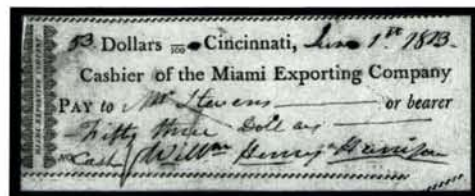 53 Dollars /100 Cincinnati, June 1st. 1813.
Cashier of the Miami Exporting Company
PAY to Mr. Stevens or bearer
Fifty three Dollars
No Cash Willm Henry Harrison
MIAMI EXPORTING COMPANY